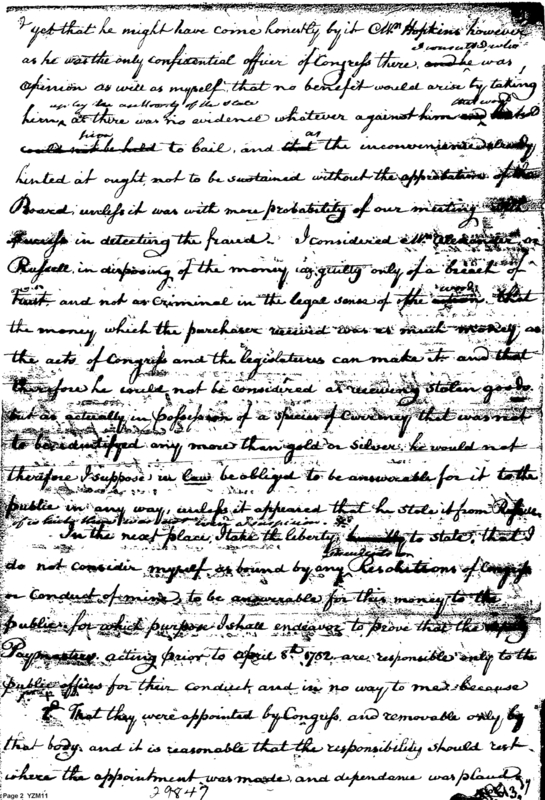 yet that he might have come honestly by it Mr. Hopkins however
I consulted, who
as he was the only confidential officer of Congress there, and he was,
opinion as well as myself, that no benefit would arise by taking
up by the authority of the state
him, as there was no evidence whatever against him and
him
could not be held to bail, and that as the inconvenience already
hinted at ought, not to be sustained without the approbation of the
Board, unless it was with more probability of our meeting with
success in detecting the fraud. I considered Mr. Alexander, or
Russell, in disposing of the money as guilty only of a breach of
trust, and not as criminal in the legal sense of the word action that
the money which the purchaser received was as much money as
the acts of Congress and the legislatures can make it and that
therefore he could not be considered as receiving stolen goods
but as actually in possession of a species of currency that was not
to be identified any more than gold or silver, he would not
therefore I suppose in law be obliged to be answerable for it to the
public in any way, unless it appeared that he stole it from Russell
of which there was not
In the next place, I take the liberty, to state, that I
do not consider myself as bound by any Resolutions of Congress
or conduct of mine, to be answerable for this money to the
public for which purpose I shall endeavor to prove that the
Paymasters acting prior to April 8th. 1782 are, responsible only to the
public for their conduct, and in no way to me because
That they were appointed by Congress, and removable only by
that body and it is reasonable that the responsibility should rest
where the appointment was made, and dependance was placed
Page 2 YZM11
29847